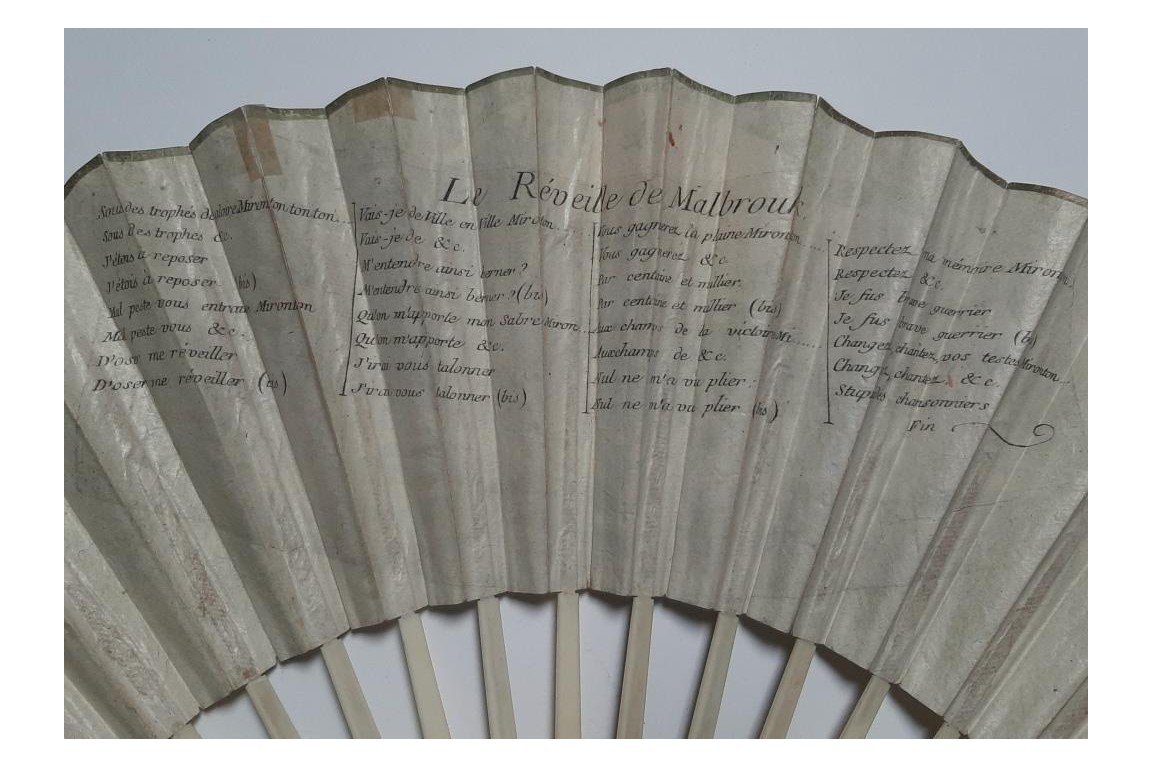 Le Réveille de Malbrouk
Sous des trophés de gloire Mironton tonton...
Sous des trophés &c.
J'étois à reposer
J'étois à reposer (bis)
Mal peste vous entrave Mironton
Mal peste vous &c...
D'oser me réveiller
D'oser me réveiller (bis)
Vais-je de Ville en Ville Mironton....
Vais-je de &c.
M'entendre ainsi berner?
M'entendre ainsi berner? (bis)
Qu'on m'apporte mon Sabre Miron...
Qu'on m'apporte &c.
J'irai vous talonner
J'irai vous talonner (bis)
Vous gagnerez la plaine Mironton.....
Vous gagnerez &c.
Par centaine et millier.
Par centaine et millier (bis)
Aux champs de la victoir Mi.....
Aux champs de &c.
Nul ne m'a vu plier.
Nul ne m'a vu plier (bis)
Respectez ma mémoire Mironton.
Respectez &c.
Je fus brave guerrier
Je fus brave guerrier (bis)
Changez, chantez, vos testes Mironton...
Changez, chantez &c.
Stupides chansonniers
Fin